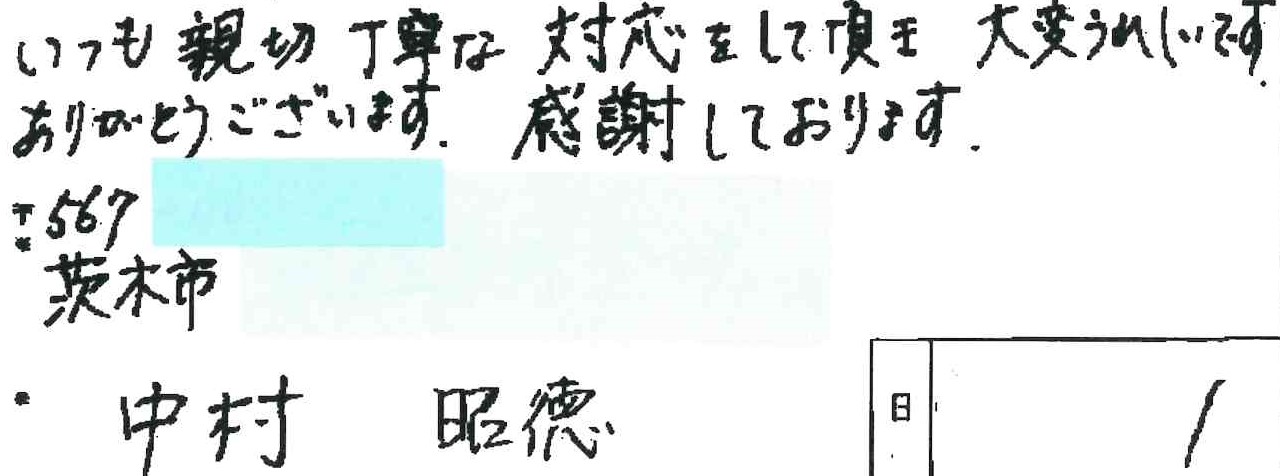 いつも親切丁寧な 対応をして頂き 大変うれしいです.
ありがとうございます. 感謝しております.
〒567
茨木市
中村 昭徳
日 /